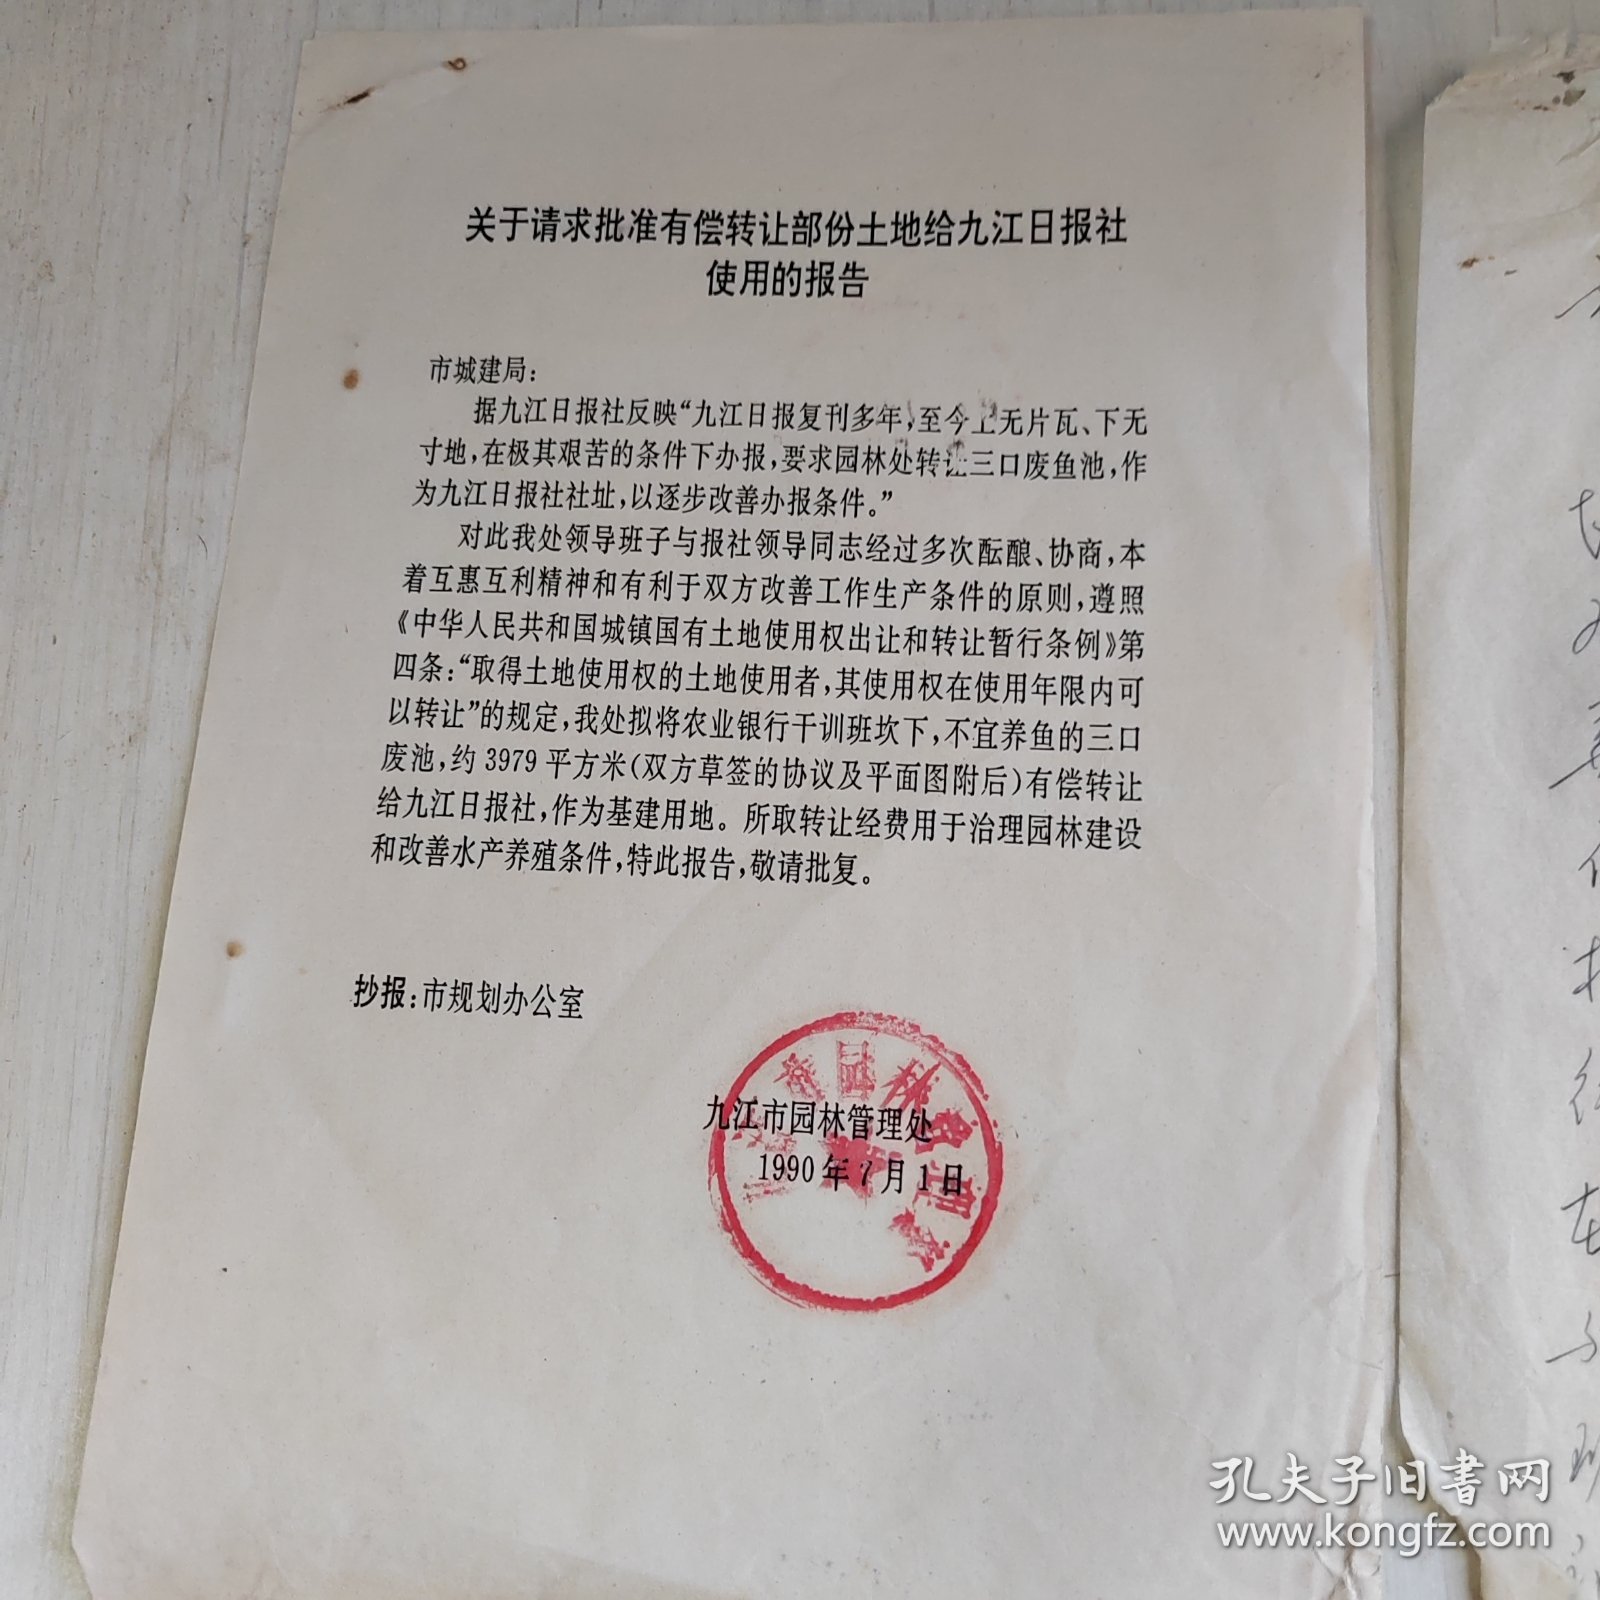 关于请求批准有偿转让部份土地给九江日报社
使用的报告
市城建局：
据九江日报社反映“九江日报复刊多年，至今上无片瓦、下无
寸地，在极其艰苦的条件下办报，要求园林处转让三口废鱼池，作
为九江日报社社址，以逐步改善办报条件。”
对此我处领导班子与报社领导同志经过多次酝酿、协商，本
着互惠互利精神和有利于双方改善工作生产条件的原则，遵照
《中华人民共和国城镇国有土地使用权出让和转让暂行条例》第
四条：“取得土地使用权的土地使用者，其使用权在使用年限内可
以转让”的规定，我处拟将农业银行干训班坎下，不宜养鱼的三口
废池，约3979平方米（双方草签的协议及平面图附后）有偿转让
给九江日报社，作为基建用地。所取转让经费用于治理园林建设
和改善水产养殖条件，特此报告，敬请批复。
抄报：市规划办公室
九江市园林管理处
1990年7月1日
园林管理处
孔夫子旧书网
www.kongfz.com